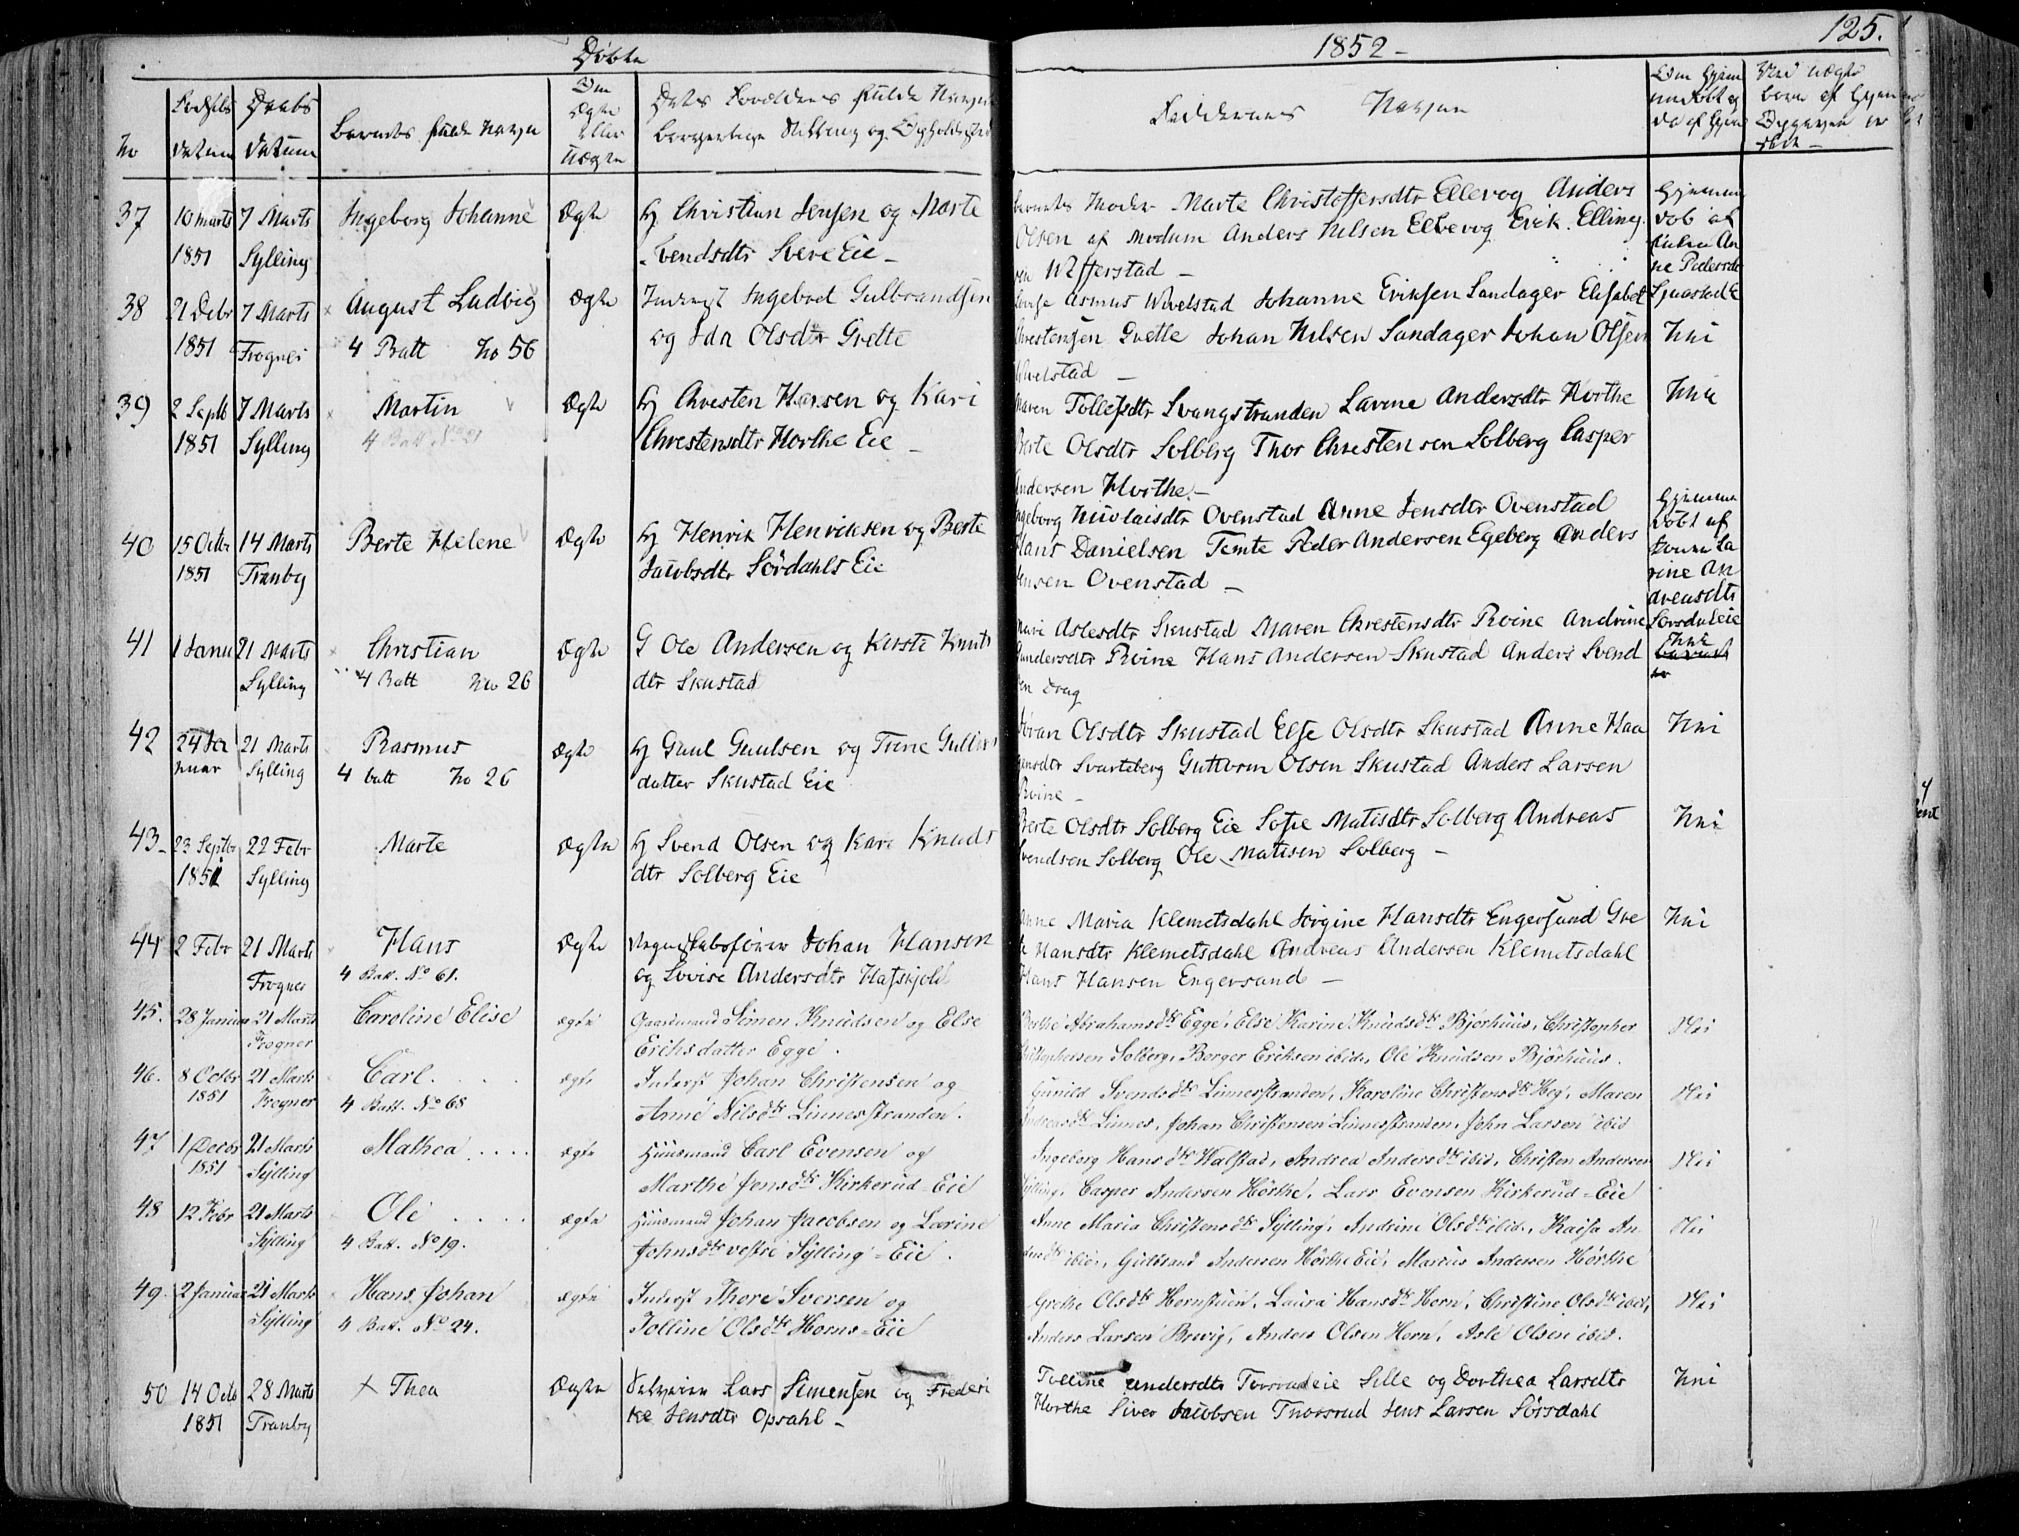 Døbte
1852 -
125.
No
Fødsels datum
Daabs datum
Barnets fulde Navn
Om Ægte eller Uægte
Dets Forældres fulde Navne borgerlige Stilling og Opholdssted
Faddernes Navne
37
10 Marts 1851
7 Marts Sylling
Ingeborg Johanne
Ægte
Christian Jensen og Marte
Svendsdtr Svere Eie -
Barnets Moder Marte Christoffersdtr Ellevog Anders
Olsen af Modum Anders Nilsen Ellevog Erik Elling
sen Wefferstad -
38
21 Debr 1851
7 Marts Frogner
August Ludvig
4 Batt No 56
Ægte
Inderst Ingebret Gulbrandsen
og Ida Olsdtr Grette
Asmus Wivelstad Johanne Eriksen Sandager Elisabet
Christensen Grette Johan Nilsen Sandager Johan Olsen
Wivelstad -
Nei
39
2 Septb 1851
7 Marts Sylling
Martin
4 Batt No 21
Ægte
Christen Hansen og Kari
Christensdtr Horthe Eie -
Maren Tollefsdtr Svangstranden Lavine Andersdtr Horthe
Berte Olsdtr Solberg Thor Christensen Solberg Casper
Andersen Horthe -
Nei
40
15 Octbr 1851
14 Marts Tranby
Berte Helene
Ægte
Henrik Henriksen og Berte
Jacobsdtr Sørdahls Eie
Ingeborg Nicolaisdtr Ovenstad Anne Jensdtr Ovenstad
Hans Danielsen Temte Peder Andersen Egeberg Anders
Jensen Ovenstad -
41
1 Janu
21 Marts Sylling
Christian
4 Batt No 26
Ægte
G Ole Andersen og Kirste Knuts
dtr Skustad
Mari Aslesdtr Skustad Maren Christensdtr Roine Andrine
Gundersdtr Roine Hans Andersen Skustad Anders Svend
sen Drag
Nei
42
24 Januar
21 Marts Sylling
Rasmus
4 batt No 26
Ægte
Gaul Gaulsen og Trine
datter Skustad Eie
Jøran Olsdtr Skustad Else Olsdtr Skustad Anne Haa
gensdtr Svarteberg Guttorm Olsen Skustad Anders Larsen
Roine -
Nei
43 -
23 Septbr 1851
22 Febr Sylling
Marte
Ægte
Svend Olsen og Kari Knuds
dtr Solberg Eie
Berte Olsdtr Solberg Eie Sofie Matisdtr Solberg Andreas
Svendsen Solberg Ole Matisen Solberg -
Nei
44
2 Febr
21 Marts Frogner
Hans
4 Batt. No 61.
Ægte
Regnskabsfører Johan Hansen
og Lovise Andersdtr Hafskjold
Anne Maria Klemetsdahl Jørgine Hansdtr Engersund Gre
te Hansdtr Klemetsdahl Andreas Andersen Klemetsdahl
Hans Hansen Engersand -
Nei
45.
28 Januar
21 Marts Frogner
Caroline Elise
ægte
Gaardmand Simen Knudsen og Else
Erichsdatter Egge.
Berthe Abrahamsdtr Egge, Else Karine Knudsdtr Bjørhuus, Christopher
Christophersen Solberg, Berger Eriksen ibid, Ole Knudsen Bjørhuus.
Nei
46.
8 Octbr 1851
21 Marts Frogner
Carl. . . .
4 Batt. No 68
ægte
Inderst Johan Christensen og
Anne Nilsdtr Linnesstranden.
Gunild Svendsdtr Linnesstranden, Karoline Christensdtr Heg, Maren
Andreasdtr Linnes, Johan Christensen Linnesstranden, John Larsen ibid
Nei
47
1 Decbr 1851
21 Marts Sylling
Mathea . . . .
ægte
Huusmand Carl Evensen og
Marthe Jensdtr Kirkerud-Eie
Ingeborg Hansdtr Walstad, Andrea Andersdtr ibid, Christen Andersen
Sylling, Casper Andersen Hørthe, Lars Evensen Kirkerud-Eie
Nei
48
12 Febr
21 Marts Sylling
Ole . . . .
4 Batt. No 19.
ægte
Huusmand Johan Jacobsen og Larine
Johnsdtr vestre Sylling-Eie.
Anne Maria Christensdtr Sylling, Andrine Olsdtr ibid, Kaisa An-
dersdtr ibid, Gulbrand Andersen Hørthe Eie, Marius Andersen Hørthe
Nei
49
2 Januar
21 Marts Sylling
Hans Johan
4 Bat. No 24.
ægte
Inderst Thore Iversen og
Tolline Olsdtr Horns-Eie
Grethe Olsdtr Hornstuen, Laura Hansdtr Horn, Christine Olsdtr ibid,
Anders Larsen Brevig, Anders Olsen Horn, Asle Olsen ibid.
Nei
50
14 Octb 1851
28 Marts Tranby
Thea
Ægte
Lars Simensen og Frederi
ke Jensdtr Opsahl -
Tolline Andersdtr Sille og Dorthea Larsdtr
Horthe Siver Jacobsen Thorsrud Jens Larsen Sørsdahl
Nei